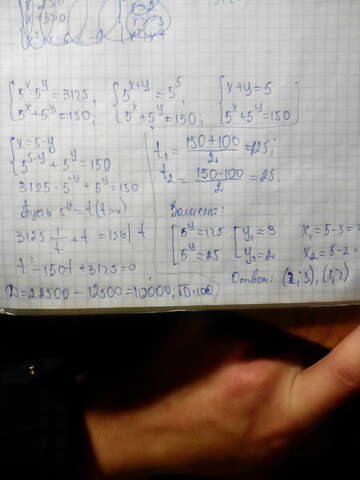 {5ˣ·5ʸ=3125, {5ˣ⁺ʸ=5⁵ {x+y=5
{5ˣ+5ʸ=150; {5ˣ+5ʸ=150; {5ˣ+5ʸ=150
{x=5-y
{5⁵⁻ʸ+5ʸ=150
3125·5⁻ʸ+5ʸ=150
Пусть 5ʸ=t(t>0)
3125 1/t + t = 150 | t
t²-150t+3125=0
D=22500-12500=10000; √D=100
t₁ = (150+100)/2 = 125;
t₂ = (150-100)/2 = 25.
Замена:
[5ʸ=125 [y₁=3 x₁=5-3=
[5ʸ=25 [y₂=2 x₂=5-2=
Ответ: (2;3), (3;2)